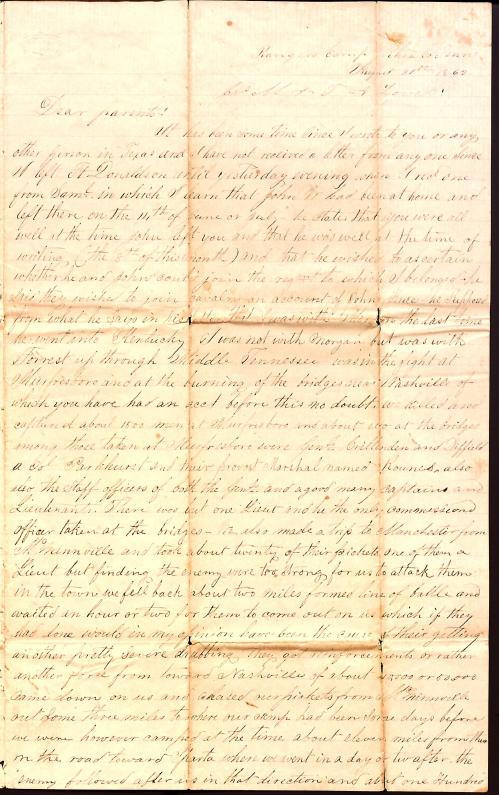 Rangers Camp
August 20th 1862
Dear parents!
It has been some time since I wrote to you or any
other person in Texas and I have not received a letter from any one since
A Donaldson until yesterday evening when I recd one
from Saml. in which I learn that John W had been at home and
left there on the 14th of June or July he states that you were all
well at the time John left you and that he was well at the time of
writing (the 8th of this month) and that he wished to ascertain
whether he and John could join the regmt to which I belonged he
says they wished to join cavalry on account of John he supposed
from what he says in his letter that I was with Morgan the last time
he went into Kentucky I was not with Morgan but was with
Forrest up through Middle Tennessee was in the fight at
Murfresboro and at the burning of the bridges near Nashville of
which you have had an acct before this no doubt. we killed and
captured about 1500 men at Murfresboro and about 100 at the bridges
among those taken at Murfresboro were Genls Crittenden and Duffield
a Col Parkhurst and their provost Marshal named Rounds, also
the Staff officers of both the Genls and a good many Captains and
Lieutenants. There was but one Lieut and he the only commissioned
officer taken at the bridges - we also made a trip to Manchester from
McMinnville and took about twenty of their pickets one of them a
Lieut but finding the enemy were too strong for us to attack them
in the town we fell back about two miles formed line of battle and
waited an hour or two for them to come out on us which if they
had done would in my opinion have been the cause of their getting
another pretty severe drubbing they got reinforcements or rather
another force from toward Nashville of about or more
came down on us and caused our pickets from McMinnville
out some three miles to where our camp had been some days before
we were however camped at the time about eleven miles from
on the road toward Sparta where we went in a day or two after. the
enemy followed after us in that direction and about one Hundred